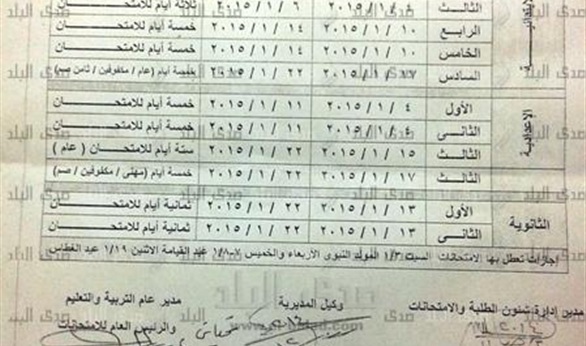 الثالث ٢٠١٥/١/٦ ثلاثة أيام للامتحان
الرابع ٢٠١٥/١/١٠ ٢٠١٥/١/١٤ خمسة أيام للامتحان
الخامس ٢٠١٥/١/١٠ ٢٠١٥/١/١٤ خمسة أيام للامتحان
السادس ٢٠١٥/١/١٧ ٢٠١٥/١/٢٢ خمسة أيام (عام / مكفوفين / ثامن صم)
الإعدادية
الأول ٢٠١٥/١/٤ ٢٠١٥/١/١١ خمسة أيام للامتحان
الثانى ٢٠١٥/١/٤ ٢٠١٥/١/١١ خمسة أيام للامتحان
الثالث ٢٠١٥/١/١٥ ٢٠١٥/١/٢٢ ستة أيام للامتحان ( عام )
الثالث ٢٠١٥/١/١٧ ٢٠١٥/١/٢٢ خمسة أيام (مهنى / مكفوفين / صم)
الثانوية
الأول ٢٠١٥/١/١٣ ٢٠١٥/١/٢٢ ثمانية أيام للامتحان
الثانى ٢٠١٥/١/١٣ ٢٠١٥/١/٢٢ ثمانية أيام للامتحان
إجازات تعطل بها الامتحانات السبت ١/٣ المولد النبوى الأربعاء والخميس ٧-١/٨ عيد القيامة الاثنين ١/١٩ عيد الغطاس
مدير إدارة شئون الطلبة والامتحانات
وكيل المديرية
مدير عام التربية والتعليم
والرئيس العام للامتحانات
صدى البلد